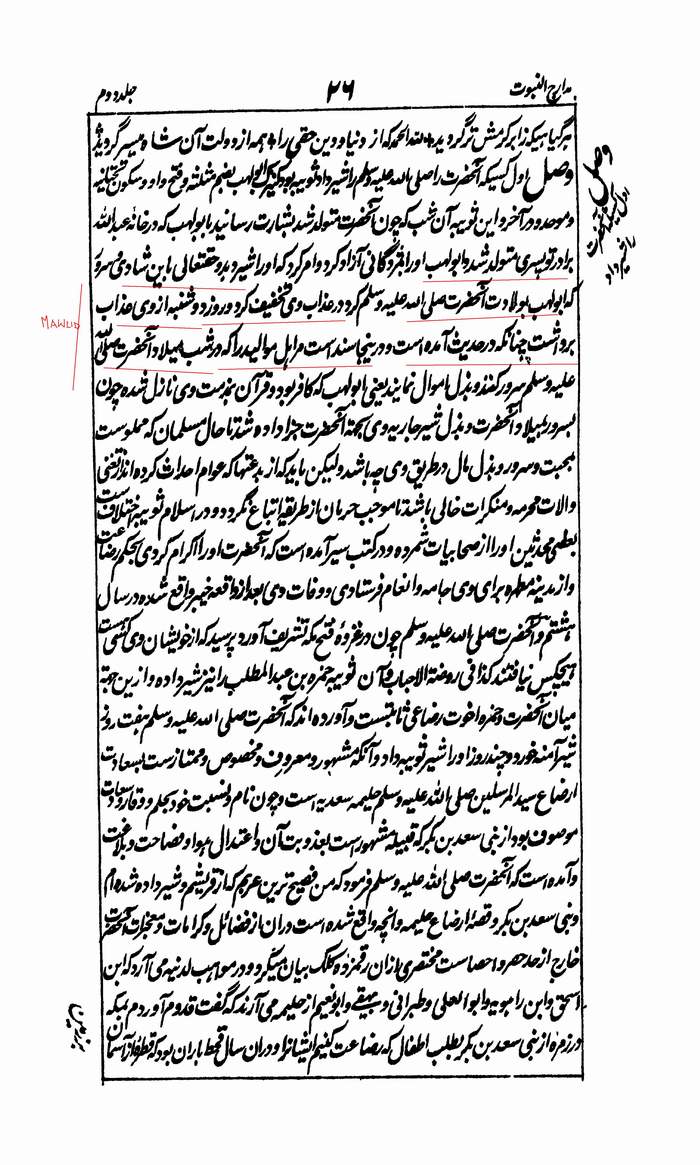 مدارج النبوت
۲۶
جلد دوم
هر گیاهیکه زابر کرمش تر گردید + لله الحمد که از دنیا و دین حقی را + همه از دولت آن شاه میسر گردید
وصل اول کسیکه آنحضرت را صلی الله علیه وسلم را شیر داد ثویبه بود کنیزک ابولهب بضم مثلثه وفتح واو وسکون تحتانیه
وموحده در آخر و این ثویبه آن شب که چون آنحضرت متولد شد بشارت رسانید بابولهب که در خانه عبدالله
برادر تو پسری متولد شد وابولهب اورا بمژدگانی آزاد کرد وامر کرد که اورا شیر دهد وحقتعالی باین شادی وسرور
که ابولهب بولادت آنحضرت صلی الله علیه وسلم کرد در عذاب وی تخفیف کرد وروز دوشنبه از وی عذاب
برداشت چنانکه در حدیث آمده است ودرینجا سند است مر اهل موالید را که در شب میلاد آنحضرت صلی الله
علیه وسلم سرور کنند وبذل اموال نمایند یعنی ابولهب که کافر بود وقرآن بمذمت وی نازل شده چون
بسرور بمیلاد آنحضرت وبذل شیر جاریه وی بجهة آنحضرت جزا داده شد تا حال مسلمان که مملوست
بمحبت وسرور وبذل مال در طریق وی چه باشد ولیکن باید که از بدعتها که عوام احداث کرده اند از تغنی
والات محرمه ومنکرات خالی باشد تا موجب حرمان از طریقه اتباع نگردد ودر اسلام ثویبه اختلافست
بعضی محدثین اورا از صحابیات شمرده ودر کتب سیر آمده است که آنحضرت اورا اکرام کردی بحکم رضاعت
واز مدینه مطهره برای وی جامه وانعام فرستادی ووفات وی بعد از واقعه خیبر واقع شده در سال
هشتم وآنحضرت صلی الله علیه وسلم چون در غزوه فتح مکه تشریف آورد پرسید که از خویشان وی کسی هست
هیچکس نیافتند کذا فی روضة الاحباب وآن ثویبه حمزه بن عبدالمطلب را نیز شیر داده وازین جهة
میان آنحضرت وحمزه اخوت رضاعی ثابتست وآورده اند که آنحضرت صلی الله علیه وسلم هفت روز
شیر آمنه خورد وچند روز اورا شیر ثویبه داد وآنکه مشهور ومعروف ومخصوص وممتاز ست بسعادت
ارضاع سید المرسلین صلی الله علیه وسلم حلیمه سعدیه است وچون نام ونسبت خود بحلم ووقار وسعادت
موصوف بود از بنی سعد بن بکر که قبیله مشهور است بعذوبت آب واعتدال هوا وفصاحت وبلاغت
وآمده است که آنحضرت صلی الله علیه وسلم فرمود که من فصیح ترین عربم که از قریشم وشیر داده شده ام
وبنی سعد بن بکر وقصهٔ ارضاع حلیمه وآنچه واقع شده است دران از فضائل وکرامات ومعجزات آنحضرت
خارج از حد حصر واحصاست مختصری ازان رقمزده کلک بیان میگردد ودر مواهب لدنیه می آرد که ابن
اسحق وابن راهویه وابو یعلی وطبرانی وبیهقی وابونعیم از حلیمه می آرند که گفت قدوم آوردم بمکه
در زمره از بنی سعد بن بکر بطلب اطفال که رضاعت کنیم ایشانرا ودران سال قحط باران بود که قطره از آسمان
وصل
اول کسیکه آنحضرت
را شیر داد
MAWLID
بر زمین